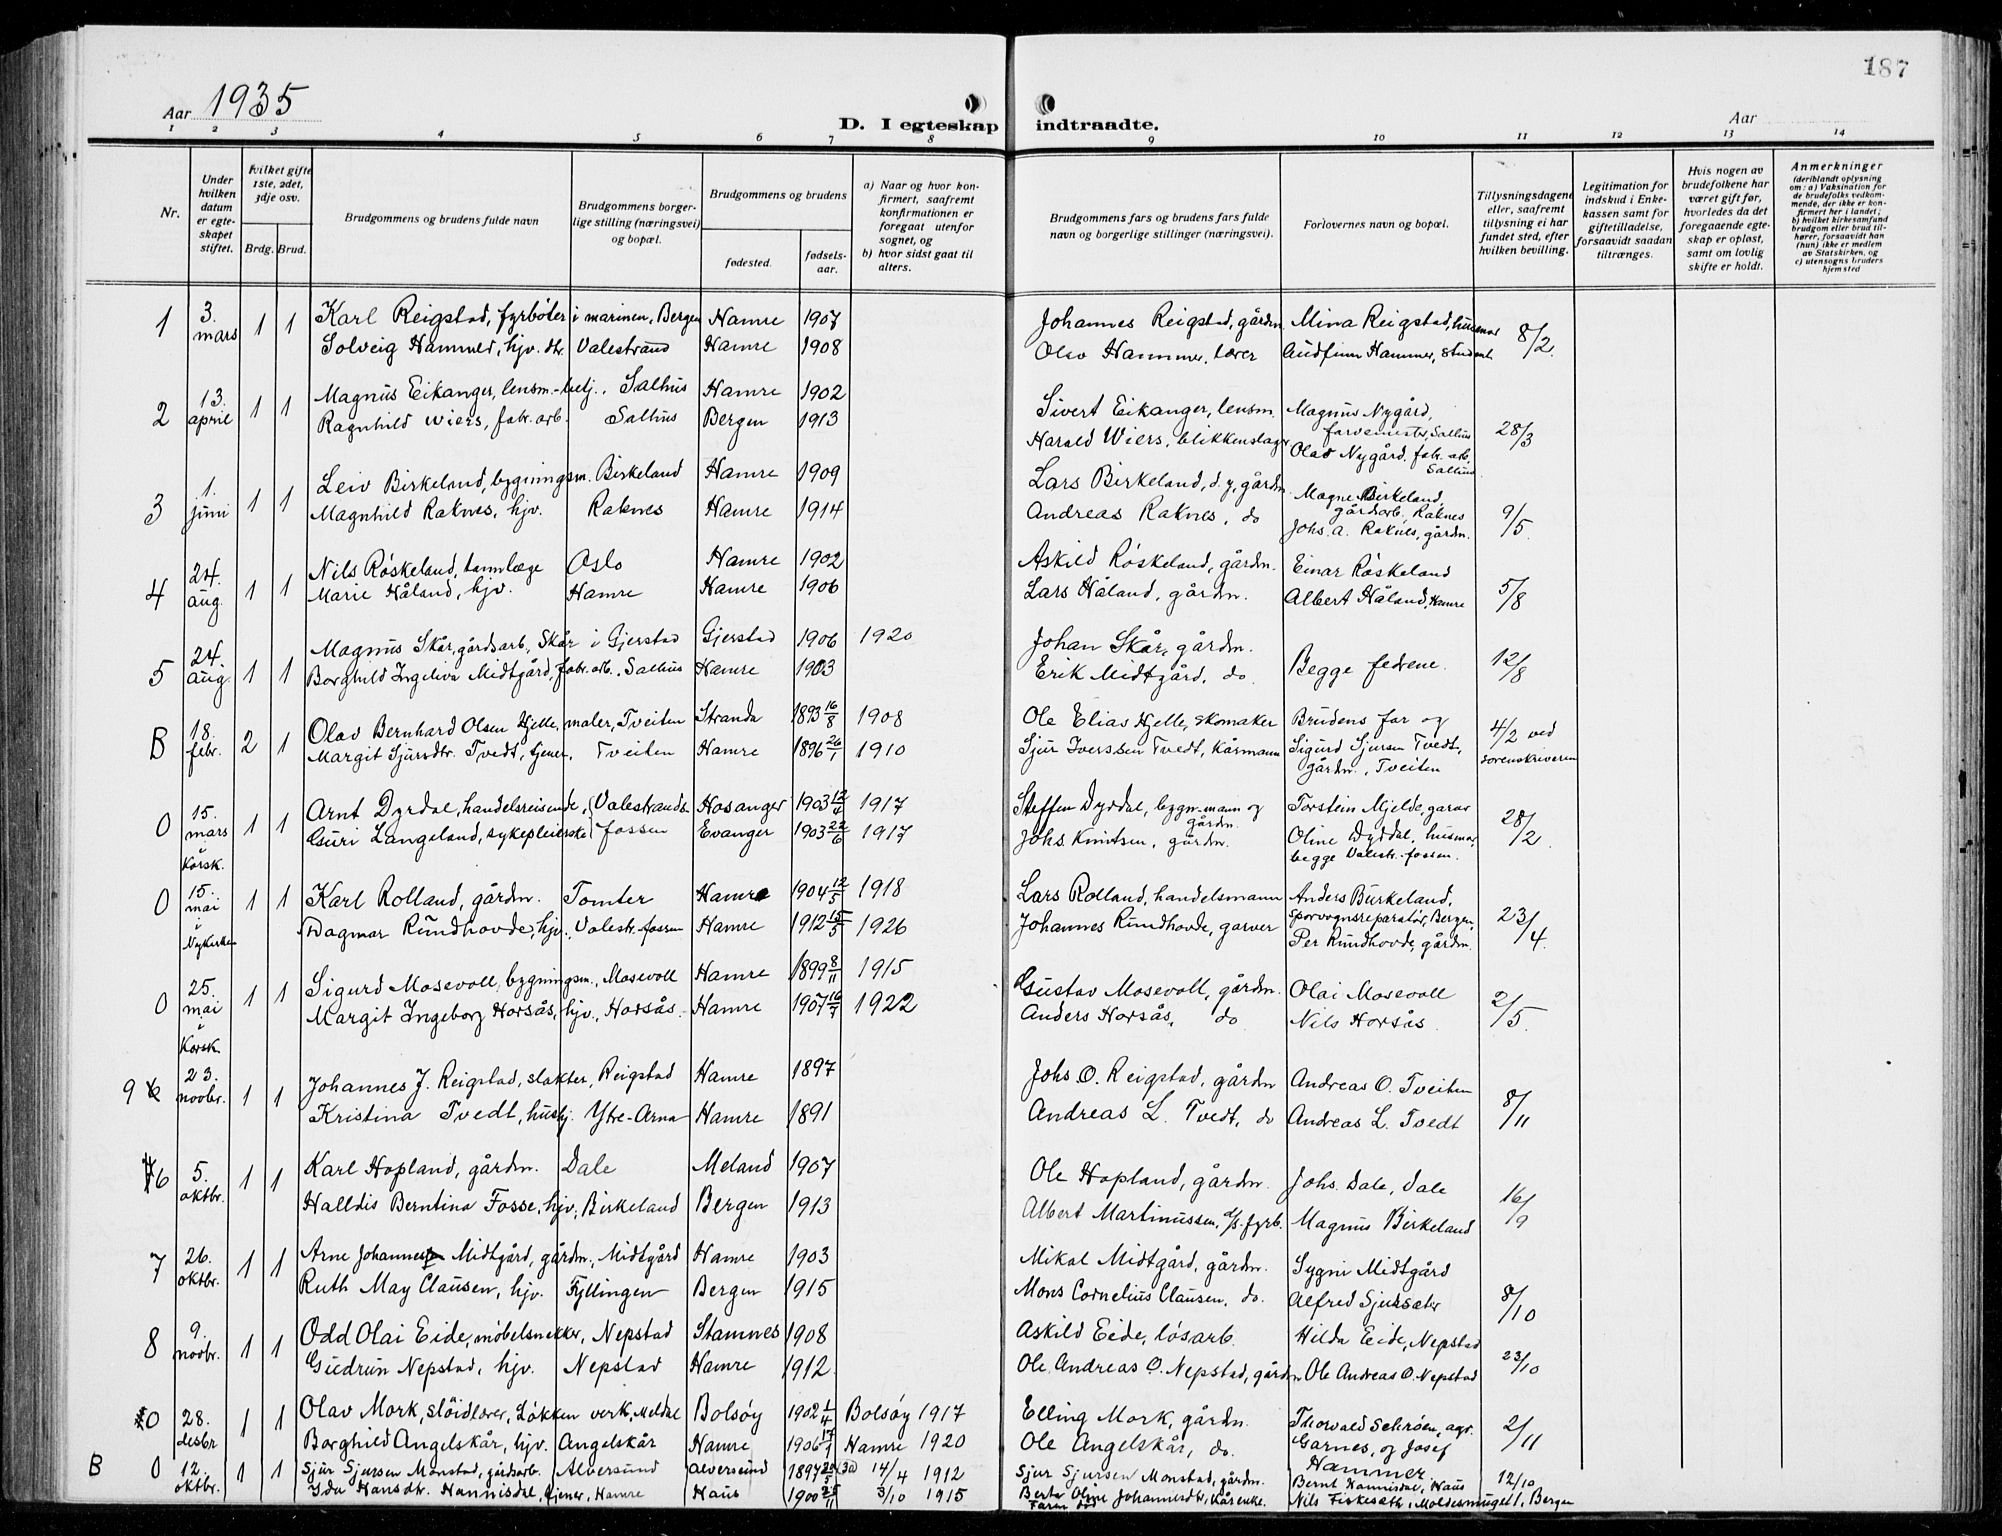 187
Aar 1935
D. I egteskap indtraadte.
Aar
1 2 3 4 5 6 7 8 9 10 11 12 13 14
Nr.
Under hvilken datum er egteskapet stiftet.
Hvilket gifte 1ste, 2det, 3dje osv.
Brdg. Brud.
Brudgommens og brudens fulde navn
Brudgommens borgerlige stilling (næringsvei) og bopæl.
Brudgommens og brudens
fødested.
fødselsaar.
a) Naar og hvor konfirmert, saafremt konfirmationen er foregaat utenfor sognet, og
b) hvor sidst gaat til alters.
Brudgommens fars og brudens fars fulde navn og borgerlige stillinger (næringsvei).
Forlovernes navn og bopæl.
Tillysningsdagene eller, saafremt tillysning ei har fundet sted, efter hvilken bevilling.
Legitimation for indskud i Enkekassen samt for giftetilladelse, forsaavidt saadan tiltrænges.
Hvis nogen av brudefolkene har været gift før, hvorledes da det foregaaende egteskap er opløst, samt om lovlig skifte er holdt.
Anmerkninger
(deriblandt oplysning om: a) Vaksination for de brudefolks vedkommende, der ikke er konfirmert her i landet; b) hvilket kirkesamfund brudgom eller brud tilhører, forsaavidt han (hun) ikke er medlem av Statskirken, og c) utensogns bruders hjemsted
1 3. mars 1 1 Karl Reigstad, fyrbøter i marinen, Bergen Hamre 1907 Johannes Reigstad, gårdm. Mina Reigstad, husmor 8/2
Solveig Hammer, hjv. dtr. Valestrand Hamre 1908 Olav Hammer, lærer Gudfinn Hammer, student
2 13. april 1 1 Magnus Eikanger, lensm.-betj., Salhus Hamre 1902 Sivert Eikanger, lensm. Magnus Nygård, farvemester, Salhus 28/3
Ragnhild Wiers, fabr. arb. Salhus Bergen 1913 Harald Wiers, blikkenslager Olav Nygård, fabr. arb. Salhus
3 1. juni 1 1 Leiv Birkeland, bygningsm. Birkeland Hamre 1909 Lars Birkeland, d.y, gårdm. Magne Birkeland, gårdsarb., Raknes 9/5
Magnhild Raknes, hjv. Raknes Hamre 1914 Andreas Raknes, do Johs. A. Raknes, gårdm.
4 24. aug. 1 1 Nils Røskeland, tannlæge Oslo Hamre 1902 Askild Røskeland, gårdm. Einar Røskeland 5/8
Marie Håland, hjv. Hamre Hamre 1906 Lars Håland, gårdm. Albert Håland, Hamre
5 24. aug 1 1 Magnus Skår, gårdsarb., Skår i Gjerstad Gjerstad 1906 1920 Johan Skår, gårdm. Begge fedrene. 12/8
Borghild Ingeliva Midtgård, fabr. arb., Salhus Hamre 1903 Erik Midtgård, do.
B 18. febr. 2 1 Olav Bernhard Olsen Hjelle, maler, Tveiten Stranda 1893 16/8 1908 Ole Elias Hjelle, skomaker Brudens far og 4/2 ved sorenskriveren
Margit Sjursdtr. Tvedt, tjener, Tveiten Hamre 1896 26/1 1910 Sjur Iverssen Tvedt, kårmann Sigurd Sjursen Tvedt, gårdm., Tveiten
0 15. mars i Korsk. 1 1 Arnt Dyrdal, handelsreisende, Valestrands- Hosanger 1903 12/4 1917 Steffen Dyrdal, bygn.-mann og gårdm. Torstein Mjelde, garver 28/2
Guri Langeland, sykepleierske fossen Evanger 1903 22/6 1917 Johs. Knutsen, gårdm. Oline Dyrdal, husmor, begge Valestr.-fossen.
0 15. mai i Nykirken 1 1 Karl Rolland, gårdm. Tomter Hamre 1904 12/5 1918 Lars Rolland, handelsmann Anders Birkeland, sporvognsreparatør, Bergen, 23/4
Dagmar Rundhovde, hjv., Valestr. fossen Hamre 1912 15/5 1926 Johannes Rundhovde, garver Per Rundhovde, gårdm.
0 25. mai i Korsk. 1 1 Sigurd Mosevoll, bygningsm., Mosevoll Hamre 1899 8/11 1915 Gustav Mosevoll, gårdm. Olai Mosevoll 2/5
Margit Ingeborg Horsås, hjv., Horsås. Hamre 1907 16/7 1922 Anders Horsås, do Nils Horsås
9 23. novbr. 1 1 Johannes J. Reigstad, slakter, Reigstad Hamre 1897 Johs. O. Reigstad, gårdm Andreas O. Tveiten 8/11
Kristina Tvedt, hushj. Ytre-Arna Hamre 1891 Andreas L. Tvedt, do Andreas L. Tvedt
6 5. oktbr. 1 1 Karl Hopland, gårdm. Dale Meland 1907 Ole Hopland, gårdm. Johs. Dale, Dale 16/9
Halldis Berntina Fosse, hjv., Birkeland Bergen 1913 Albert Martinussen, fyrb. Magnus Birkeland
7 26. oktbr. 1 1 Arne Johannes Midtgård, gårdm., Midtgård Hamre 1903 Mikal Midtgård, gårdm. Sygni Midtgård 8/10
Ruth May Clausen, hjv. Fyllingen Bergen 1915 Mons Cornelius Clausen, do. Alfred Sjursæter
8 9. novbr. 1 1 Odd Olai Eide, møbelsnekker, Nepstad Stamnes 1908 Askild Eide, løsarb. Hilda Eide, Nepstad 23/10
Gudrun Nepstad, hjv. Nepstad Hamre 1912 Ole Andreas O. Nepstad, gårdm Ole Andreas O. Nepstad
0 28. desbr 1 1 Olav Mork, sløidlærer, Løkken verk, Meldal Bolsøy 1902 1/4 Bolsøy 1917 Elling Mork, gårdm. Thorvald Schrøen, agr. Garnes, og Josef Hammer 2/11
Borghild Angelskår, hjv. Angelskår Hamre 1906 17/1 Hamre 1920 Ole Angelskår, do.
B 0 12. oktbr. 1 1 Sjur Sjursen Monstad, gårdsarb. Alversund Alversund 1897 14/4 1912 Sjur Sjursen Monstad, gårdm. Bernt Hannisdal, Haus 12/10
Ida Hansdtr. Hannisdal, tjener, Hamre Haus 1900 25/11 3/10 1915 Berta Oline Johannesdtr, kårenke. Faren død Nils Fiskesæth, Moldesmuget 1, Bergen